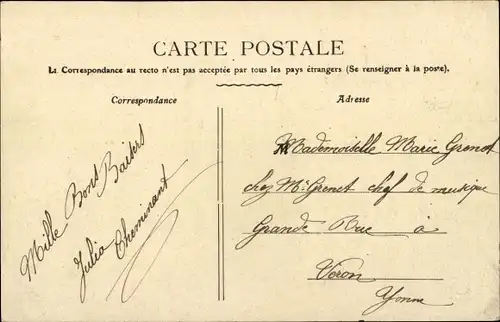 CARTE POSTALE
La Correspondance au recto n'est pas acceptée par tous les pays étrangers (Se renseigner à la poste).
Correspondance
Mille Bons Baisers
Julia Cheminant
Adresse
Mademoiselle Marie Grenet
chez Mr Grenet chef de musique
Grande Rue à
Véron
Yonne